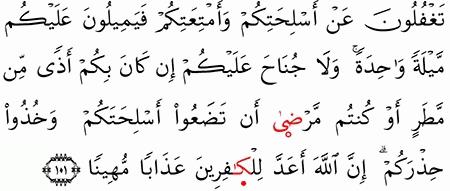 تَغْفُلُونَ عَنْ أَسْلِحَتِكُمْ وَأَمْتِعَتِكُمْ فَيَمِيلُونَ عَلَيْكُم
مَّيْلَةً وَٰحِدَةً ۚ وَلَا جُنَاحَ عَلَيْكُمْ إِن كَانَ بِكُمْ أَذًى مِّن
مَّطَرٍ أَوْ كُنتُم مَّرْضَىٰ أَن تَضَعُوٓا۟ أَسْلِحَتَكُمْ وَخُذُوا۟
حِذْرَكُمْ ۗ إِنَّ ٱللَّهَ أَعَدَّ لِلْكَٰفِرِينَ عَذَابًا مُّهِينًا ١٠١